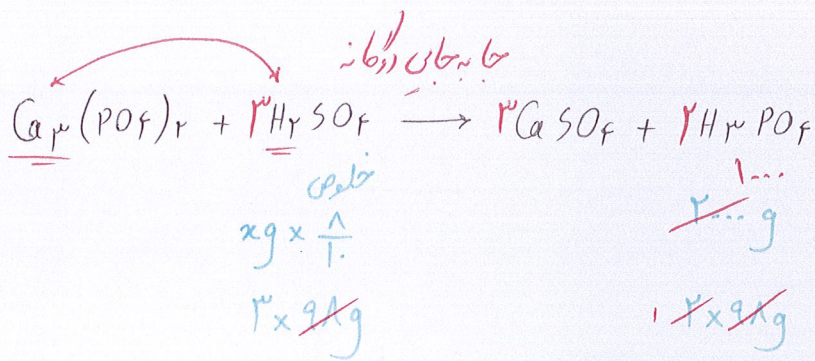 جا به جایی دوگانه
Ca۳(PO۴)۲ + ۳H۲SO۴ → ۳CaSO۴ + ۲H۳PO۴
۱۰۰۰
خلوص
xg × ۸/۱۰ ۲۰۰۰ g
۳ × ۹۸g ۱ ۲ × ۹۸g